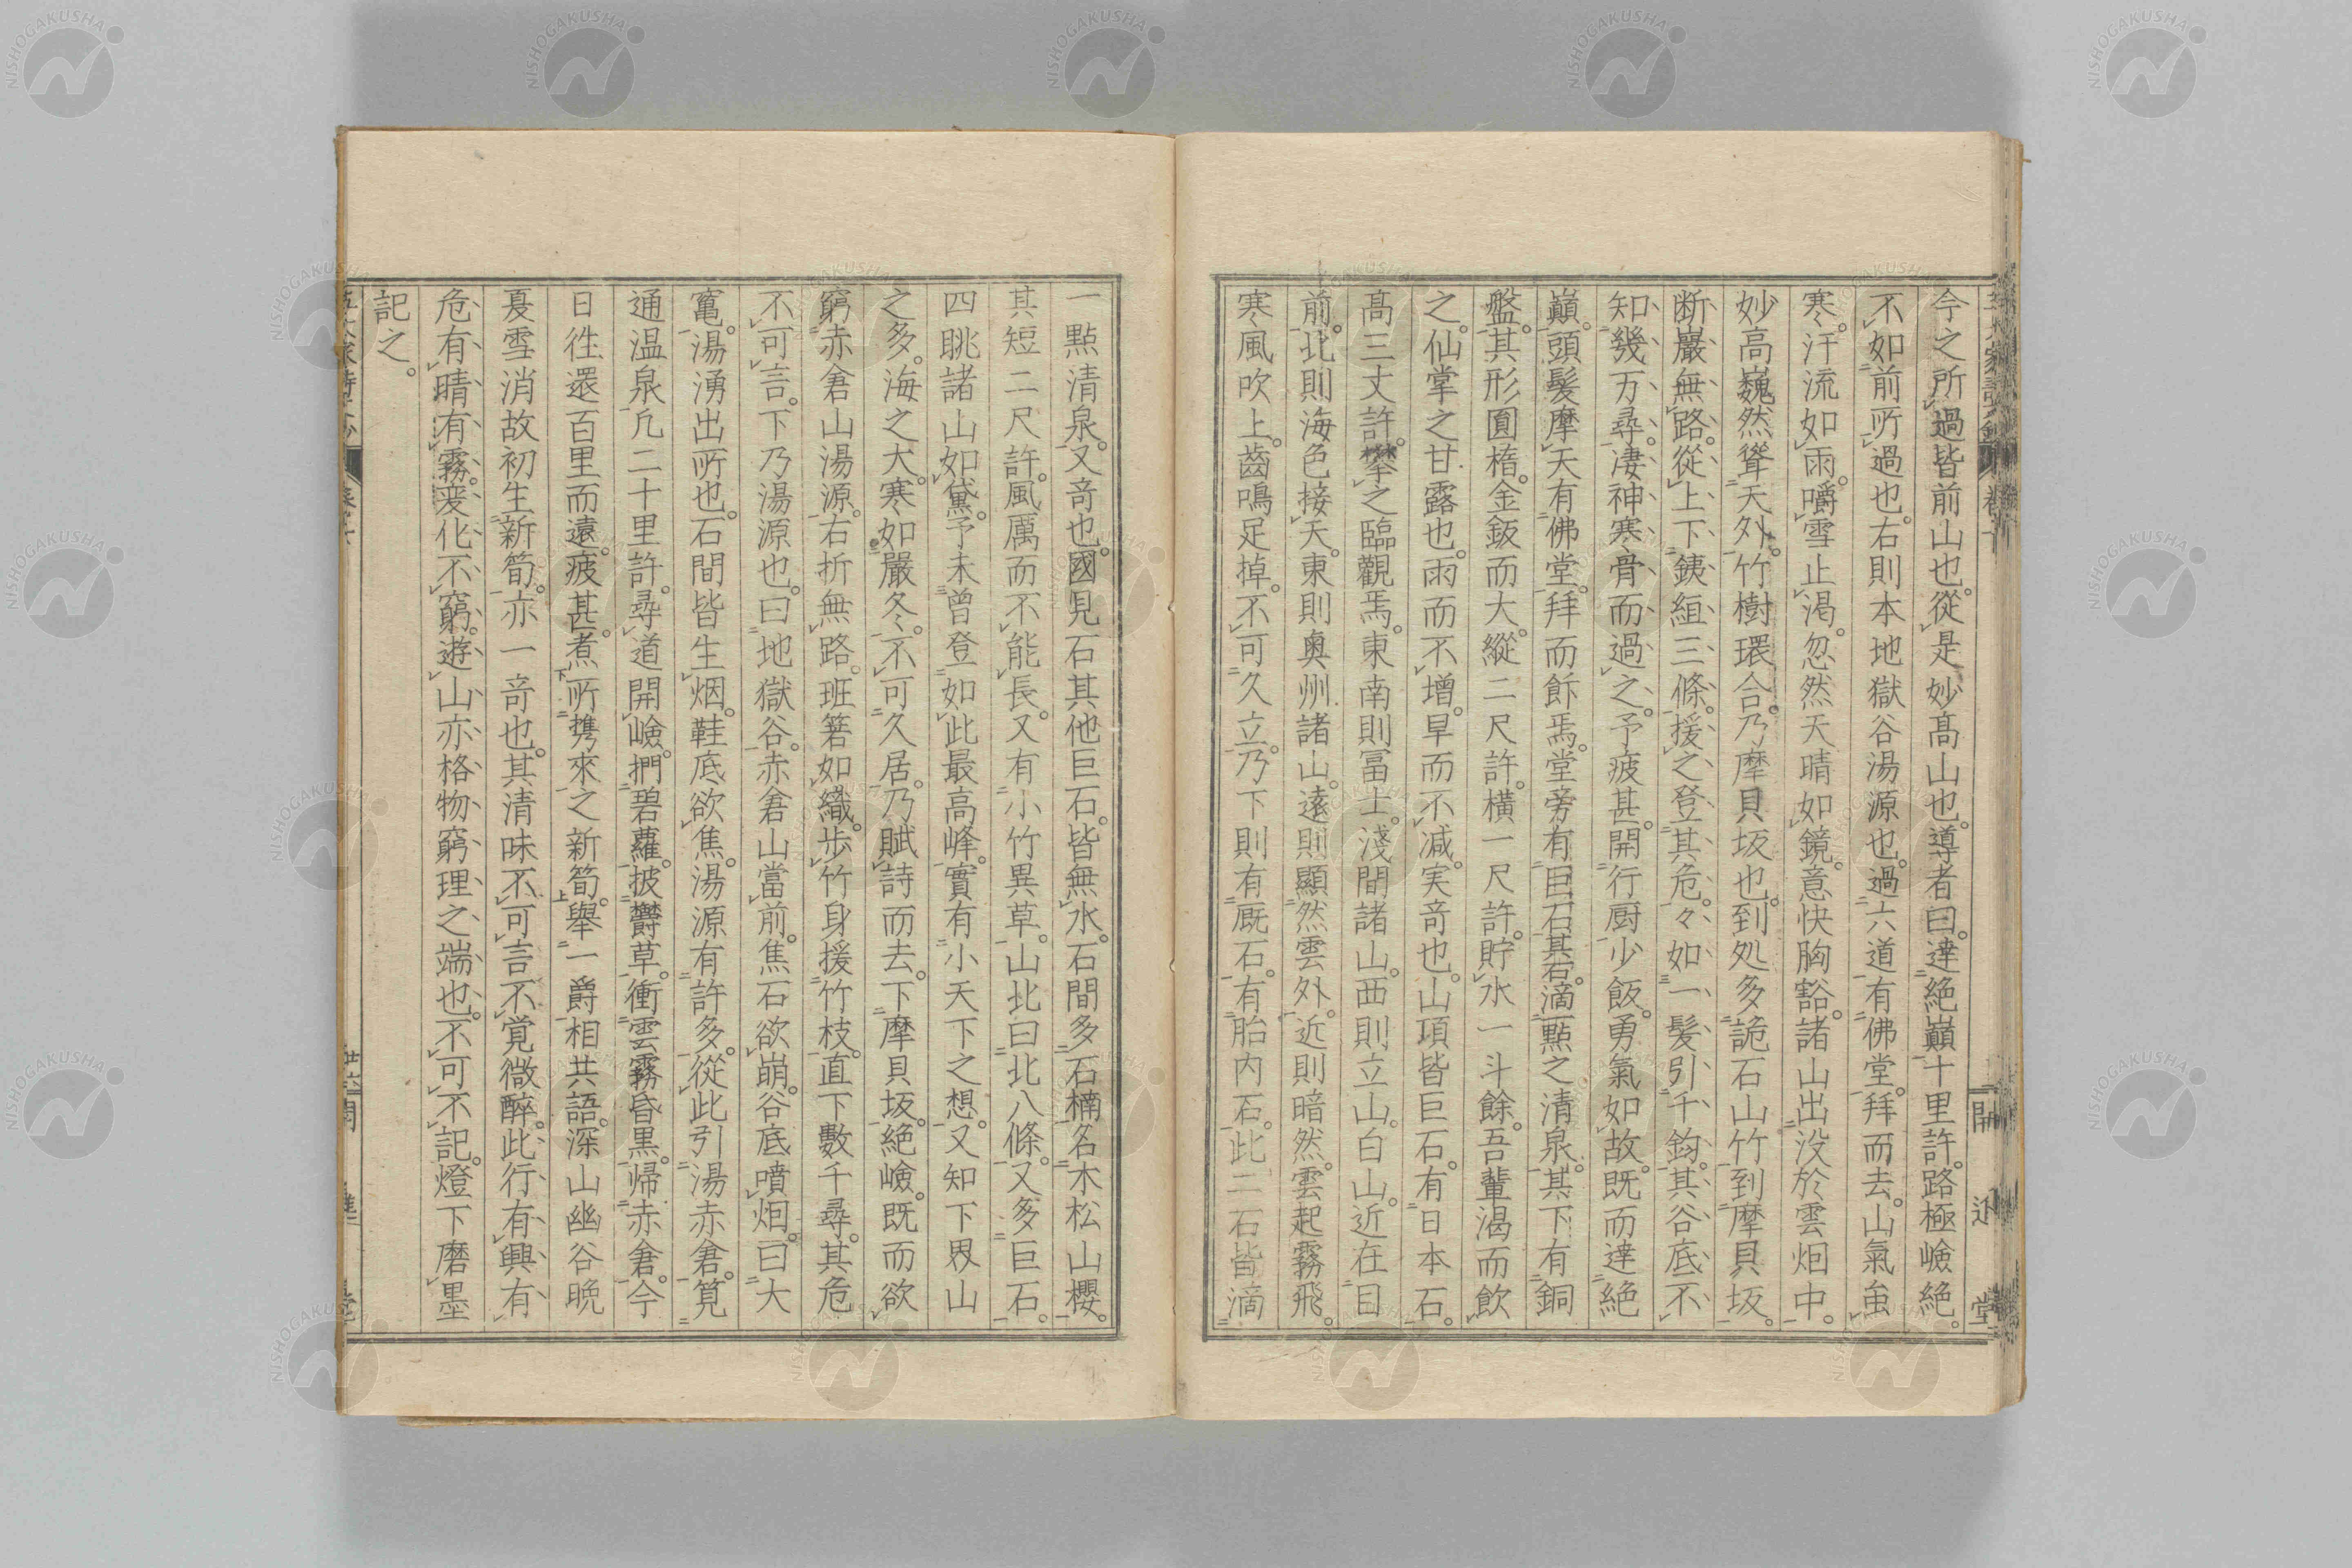 今之所過皆前山也。從是妙髙山也。導者曰。達絶巓十里許。路極嶮絶。
不如前所過也。右則本地獄谷湯源也。過六道有佛堂。拜而去。山氣虫
寒。汗流如雨。嚼雪止渇。忽然天晴如鏡。意快胸豁。諸山出没於雲烟中。
妙高巍然聳天外。竹樹環合。乃摩貝坂也。到処多詭石山竹到摩貝坂。
断巖無路。從上下銕絙三條。援之登其危。々如一髪引千鈞。其谷底不
知幾万尋。凄神寒骨而過之。予疲甚。開行厨少飯。勇氣如故。既而達絶
巓。頭髮摩天有佛堂。拜而餙焉。堂旁有巨石。其石滴一點之清泉。其下有銅
盤。其形圓楕。金鈑而大。縱二尺許。横一尺許。貯水一斗餘。吾輩渇而飲
之。仙掌之甘露也。雨而不增。早而不减。実竒也。山頂皆巨石。有日本石。
髙三丈許。攀之臨觀焉。東南則冨士。淺間諸山。西則立山。白山。近在目
前。北則海色接天。東則奥州諸山。遠則顯然雲外。近則暗然。雲起霧飛。
寒風吹上。齒鳴足掉。不可久立。乃下則有厩石。有胎内石。此二石皆滴
一點清泉。又竒也。國見石其他巨石。皆無水。石間多石楠名木松山櫻。
其短二尺許。風厲而不能長。又有小竹異草。山北曰北八條。又多巨石。
四眺諸山如黛。予未曾登如此最高峰。實有小天下之想。又知下界山
之多。海之大。寒如嚴冬。不可久居。乃賦詩而去。下摩貝坂。絶嶮。既而欲
窮赤倉山湯源。右折無路。班箬如織。歩竹身援竹枝。直下數千尋。其危
不可言。下乃湯源也。曰地獄谷。赤倉山當前。焦石欲崩。谷底噴烟。曰大
竃。湯湧出所也。石間皆生烟。鞋底欲焦。湯源有許多。從此引湯赤倉。筧
通温泉凢二十里許。尋道開嶮。捫碧蘿。披欝草。衝雲霧昏黒。帰赤倉。今
日徃還百里而遠。疲甚。煮所携來之新筍。舉一爵相共語。深山幽谷晩
夏雪消故初生新筍。亦一竒也。其清味不可言。不覚微醉。此行有興有
危有晴有霧。変化不窮。遊山亦格物窮理之端也。不可不記。燈下磨墨
記之。